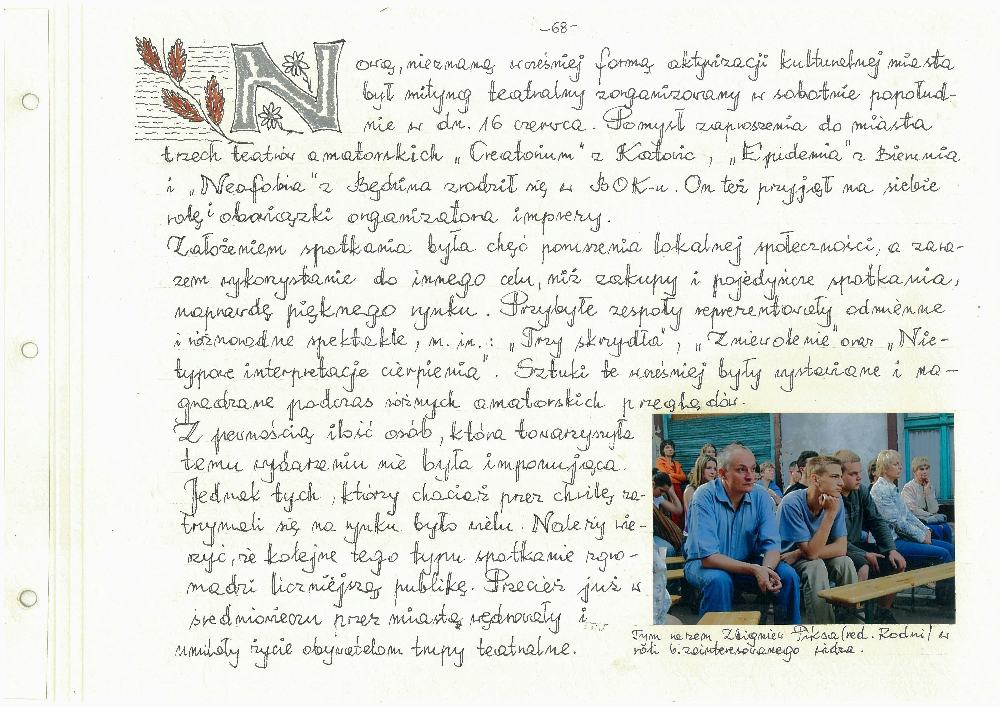 -68-
Nową, nieznaną wcześniej formą aktywizacji kulturalnej miasta
był mityng teatralny zorganizowany w sobotnie popołud-
nie w dn. 16 czerwca. Pomysł zaproszenia do miasta
trzech teatrów amatorskich „Creatorium" z Katowic, „Epidemia" z Bierunia
i „Neofobia" z Będzina zrodził się w BOK-u. On też przyjął na siebie
rolę i obowiązki organizatora imprezy.
Założeniem spotkania była chęć poruszenia lokalnej społeczności, a zara-
zem wykorzystanie do innego celu, niż zakupy i pojedyńcze spotkania,
naprawdę pięknego rynku. Przybyłe zespoły reprezentowały odmienne
i różnorodne spektakle, m. in.: „Trzy skrzydła", „Zniewolenie" oraz „Nie-
typowe interpretacje cierpienia". Sztuki te wcześniej były wystawiane i na-
gradzane podczas różnych amatorskich przeglądów.
Z pewnością ilość osób, która towarzyszyła
temu wydarzeniu nie była imponująca.
Jednak tych, którzy chociaż przez chwilę za-
trzymali się na rynku było wielu. Należy wie-
rzyć, że kolejne tego typu spotkanie zgro-
madzi liczniejszą publikę. Przecież już w
średniowieczu przez miasta wędrowały i
umilały życie obywatelom trupy teatralne.
Tym razem Zbigniew Piksa (red. Rodni) w
roli b. zainteresowanego widza.